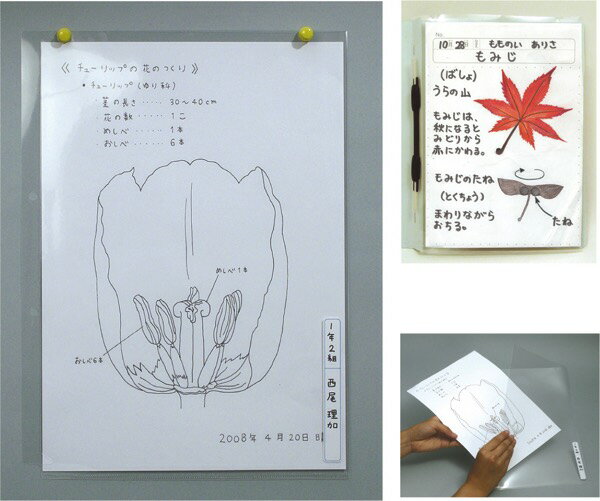 《 チューリップの花のつくり 》
• チューリップ(ゆり科)
・茎の長さ ····· 30〜40cm
・花の数 ····· 1こ
・めしべ ····· 1本
・おしべ ····· 6本
めしべ1本
おしべ6本
1年2組 西尾 理加
2008年 4月20日
10月28日 もものい ありさ
もみじ
(ばしょ)
うらの山
もみじは、
秋になると
みどりから
赤にかわる。
もみじのたね
(とくちょう)
まわりながら
おちる。
たね